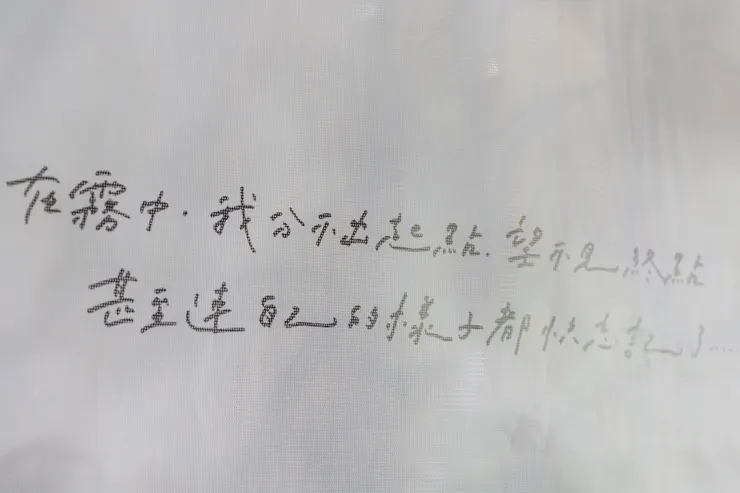 在霧中.我分不出起點.望不見終點
甚至連自己的樣子都快忘記了....